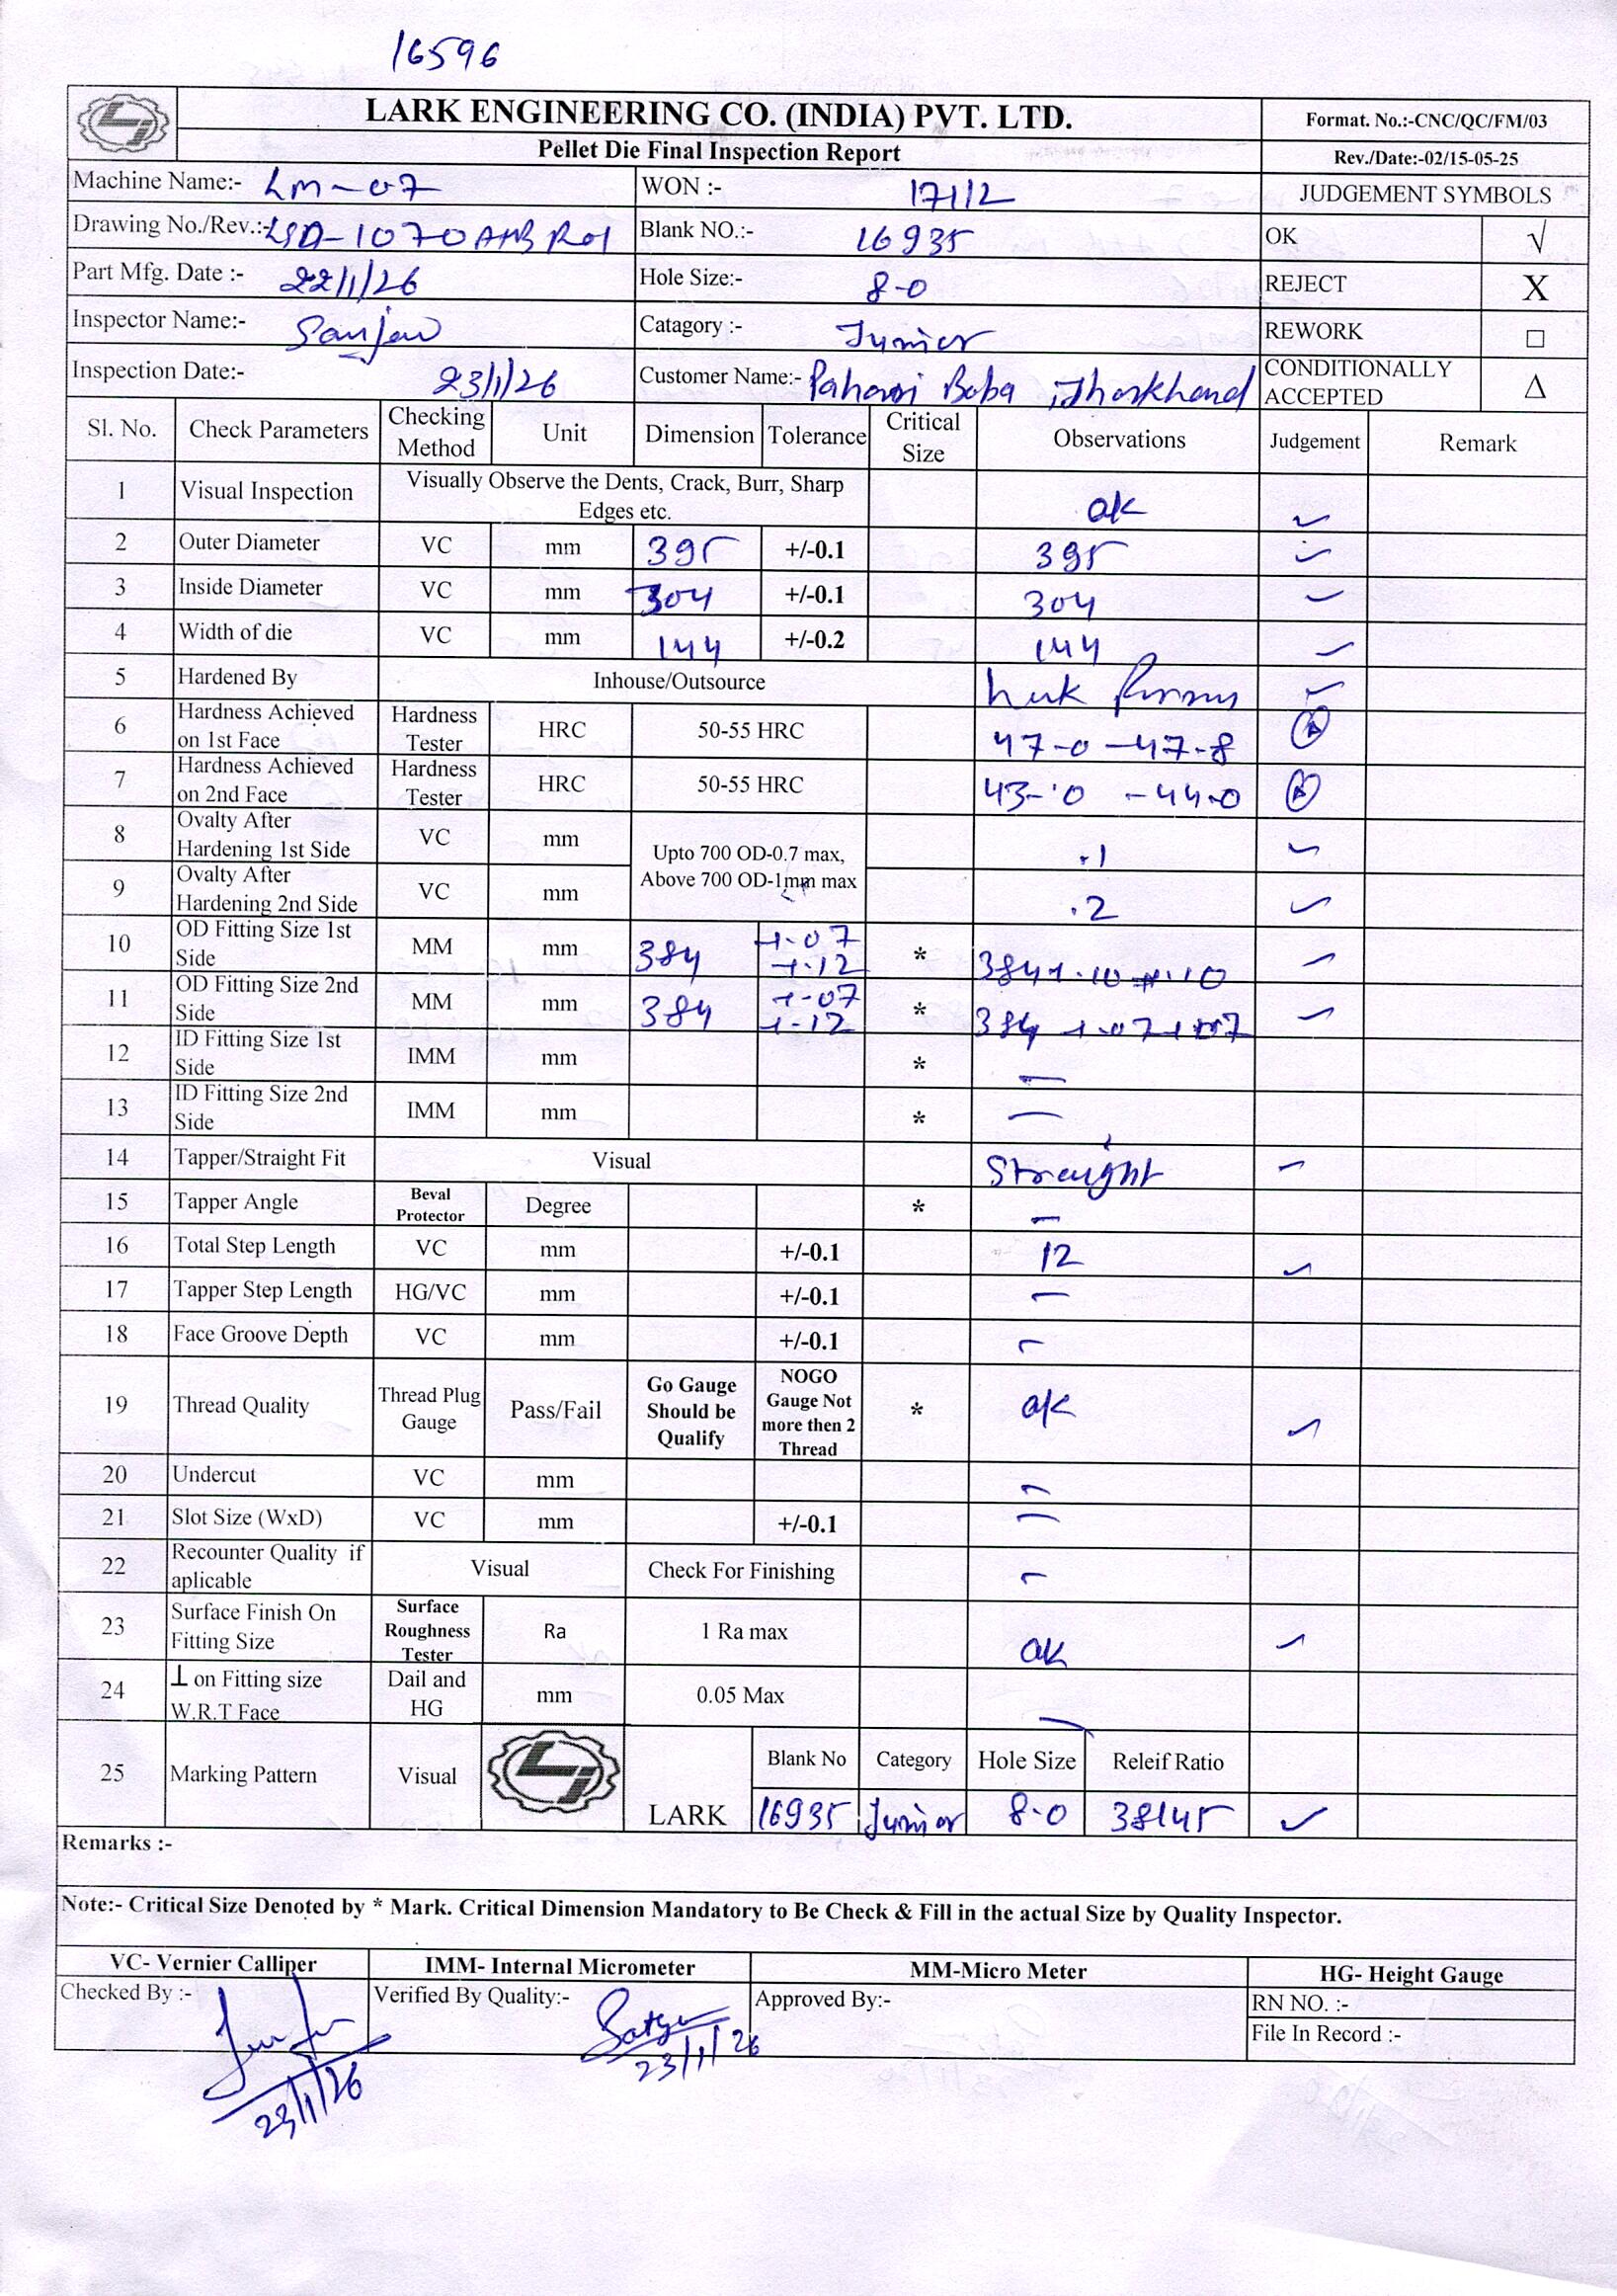 16596
LARK ENGINEERING CO. (INDIA) PVT. LTD.
Format. No.:-CNC/QC/FM/03
Pellet Die Final Inspection Report
Rev./Date:-02/15-05-25
Machine Name:- LM-07 WON :- 17112 JUDGEMENT SYMBOLS
Drawing No./Rev.:- LSD-1070AHB R01 Blank NO.:- 16935 OK √
Part Mfg. Date :- 22/1/26 Hole Size:- 8-0 REJECT X
Inspector Name:- Sanjav Catagory :- Junior REWORK □
Inspection Date:- 23/1/26 Customer Name:- Pahari Baba Jharkhand CONDITIONALLY ACCEPTED Δ
Sl. No. Check Parameters Checking Method Unit Dimension Tolerance Critical Size Observations Judgement Remark
1 Visual Inspection Visually Observe the Dents, Crack, Burr, Sharp Edges etc. ok ✓
2 Outer Diameter VC mm 395 +/-0.1 395 ✓
3 Inside Diameter VC mm 304 +/-0.1 304 ✓
4 Width of die VC mm 144 +/-0.2 144 ✓
5 Hardened By Inhouse/Outsource ✓
6 Hardness Achieved on 1st Face Hardness Tester HRC 50-55 HRC 47-0 -47-8
7 Hardness Achieved on 2nd Face Hardness Tester HRC 50-55 HRC 43-0 -44-0
8 Ovalty After Hardening 1st Side VC mm Upto 700 OD-0.7 max, Above 700 OD-1mm max .1 ✓
9 Ovalty After Hardening 2nd Side VC mm .2 ✓
10 OD Fitting Size 1st Side MM mm 384 +.07 +.12 * 384+.10 +.10 ✓
11 OD Fitting Size 2nd Side MM mm 384 +.07 +.12 * 384 +.07+.07 ✓
12 ID Fitting Size 1st Side IMM mm * —
13 ID Fitting Size 2nd Side IMM mm * —
14 Tapper/Straight Fit Visual Straight ✓
15 Tapper Angle Beval Protector Degree * —
16 Total Step Length VC mm +/-0.1 12 ✓
17 Tapper Step Length HG/VC mm +/-0.1 —
18 Face Groove Depth VC mm +/-0.1 —
19 Thread Quality Thread Plug Gauge Pass/Fail Go Gauge Should be Qualify NOGO Gauge Not more then 2 Thread * ok ✓
20 Undercut VC mm —
21 Slot Size (WxD) VC mm +/-0.1 —
22 Recounter Quality if aplicable Visual Check For Finishing —
23 Surface Finish On Fitting Size Surface Roughness Tester Ra 1 Ra max ok ✓
24 ⊥ on Fitting size W.R.T Face Dail and HG mm 0.05 Max —
25 Marking Pattern Visual LARK Blank No Category Hole Size Releif Ratio
16935 Junior 8-0 38/45 ✓
Remarks :-
Note:- Critical Size Denoted by * Mark. Critical Dimension Mandatory to Be Check & Fill in the actual Size by Quality Inspector.
VC- Vernier Calliper IMM- Internal Micrometer MM-Micro Meter HG- Height Gauge
Checked By :- Verified By Quality:- Approved By:- RN NO. :-
File In Record :-
23/1/26
23/1/26